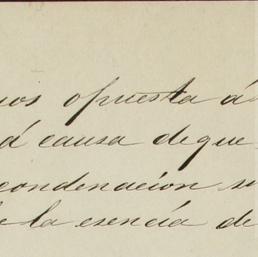 opuesta á
á causa de que
condenacion su
de la esencia de